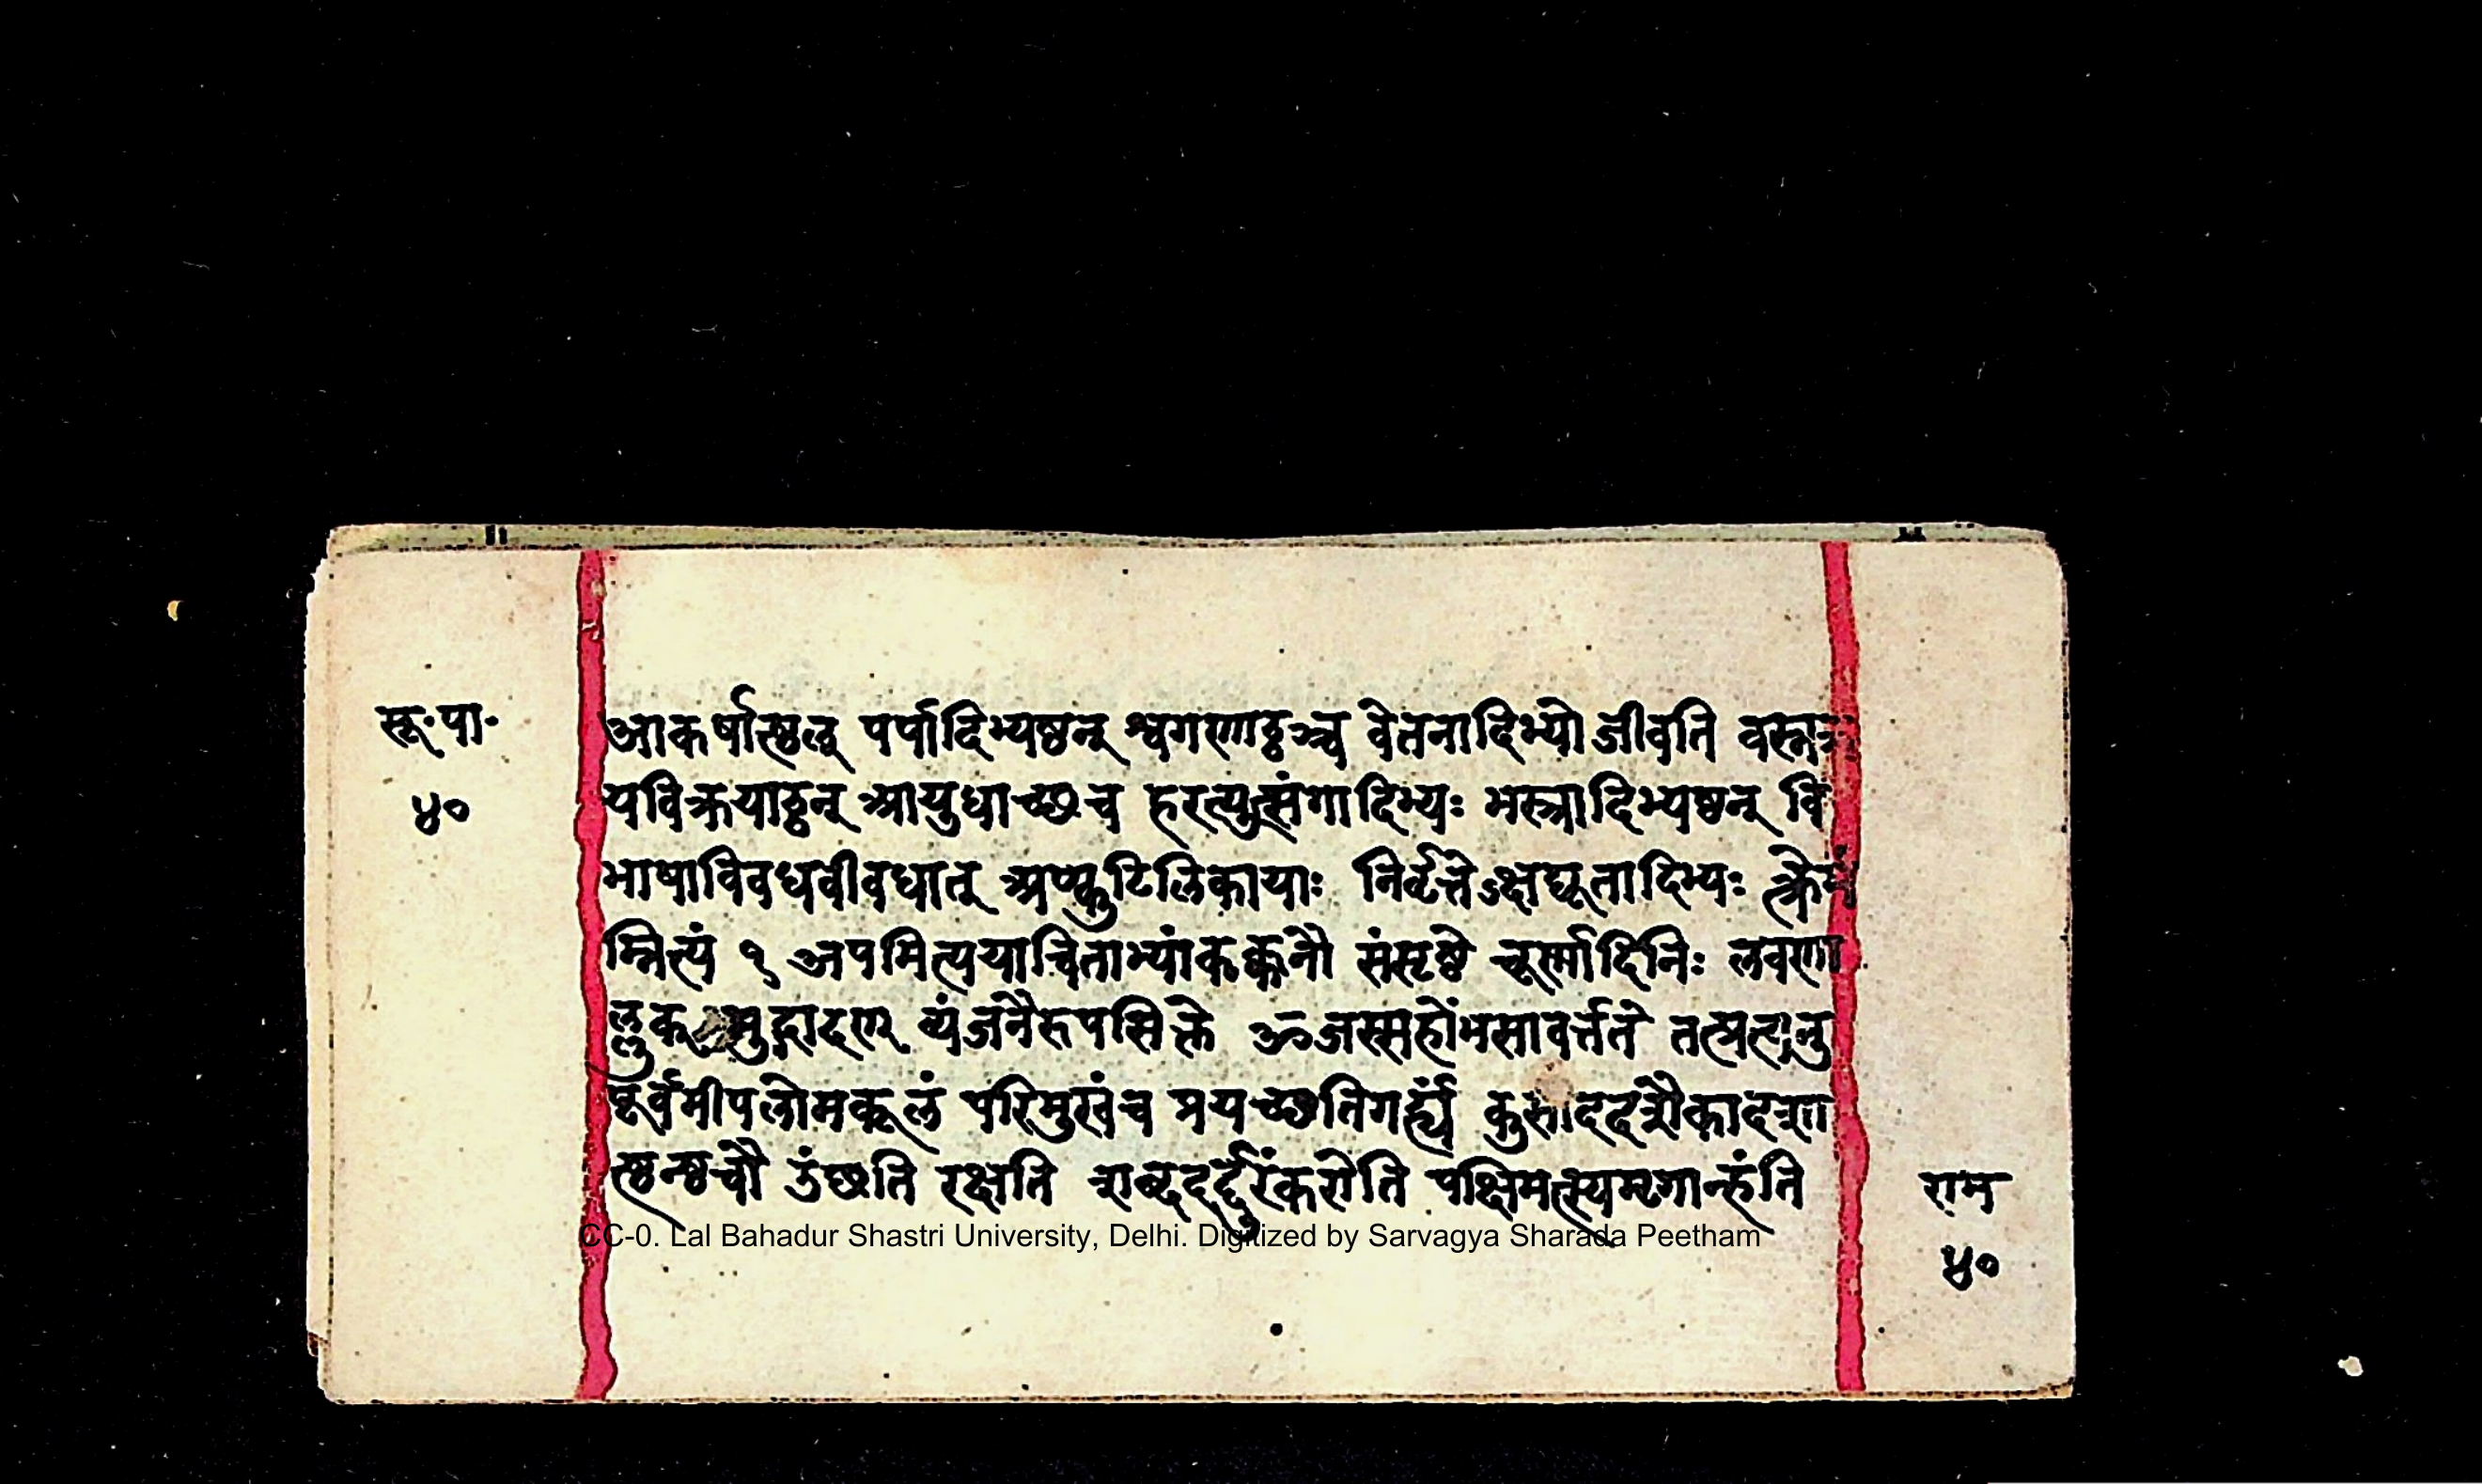 सू॰पा॰
४०
आकर्षात्ष्ठल् पर्पादिभ्यष्ठन् श्वगणाट्ठञ्च वेतनादिभ्यो जीवति वस्नक्र
यविक्रयाट्ठन् आयुधाच्छच हरत्युत्संगादिभ्यः भस्त्रादिभ्यष्ठन् वि
भाषाविवधवीवधात् अण्कुटिलिकायाः निर्वृत्तेऽक्षद्यूतादिभ्यः
म्नित्यं १ अपमित्ययाचिताभ्यांकक्कनौ संसृष्टे चूर्णादिनिः लवणा
ल्लुक् मुद्गादण् व्यंजनैरुपसिक्ते ॐजस्सहोंभसावर्त्तते तत्प्रत्यनु
पूर्वमीपलोमकूलं परिमुखंच प्रयच्छतिगर्ह्यं कुसीददशैकादशा
त्ष्ठन्ष्ठचौ उंछति रक्षति शब्ददर्दुरंकरोति पक्षिमत्स्यमृगान्हंति
राम
४०
CC-0. Lal Bahadur Shastri University, Delhi. Digitized by Sarvagya Sharada Peetham